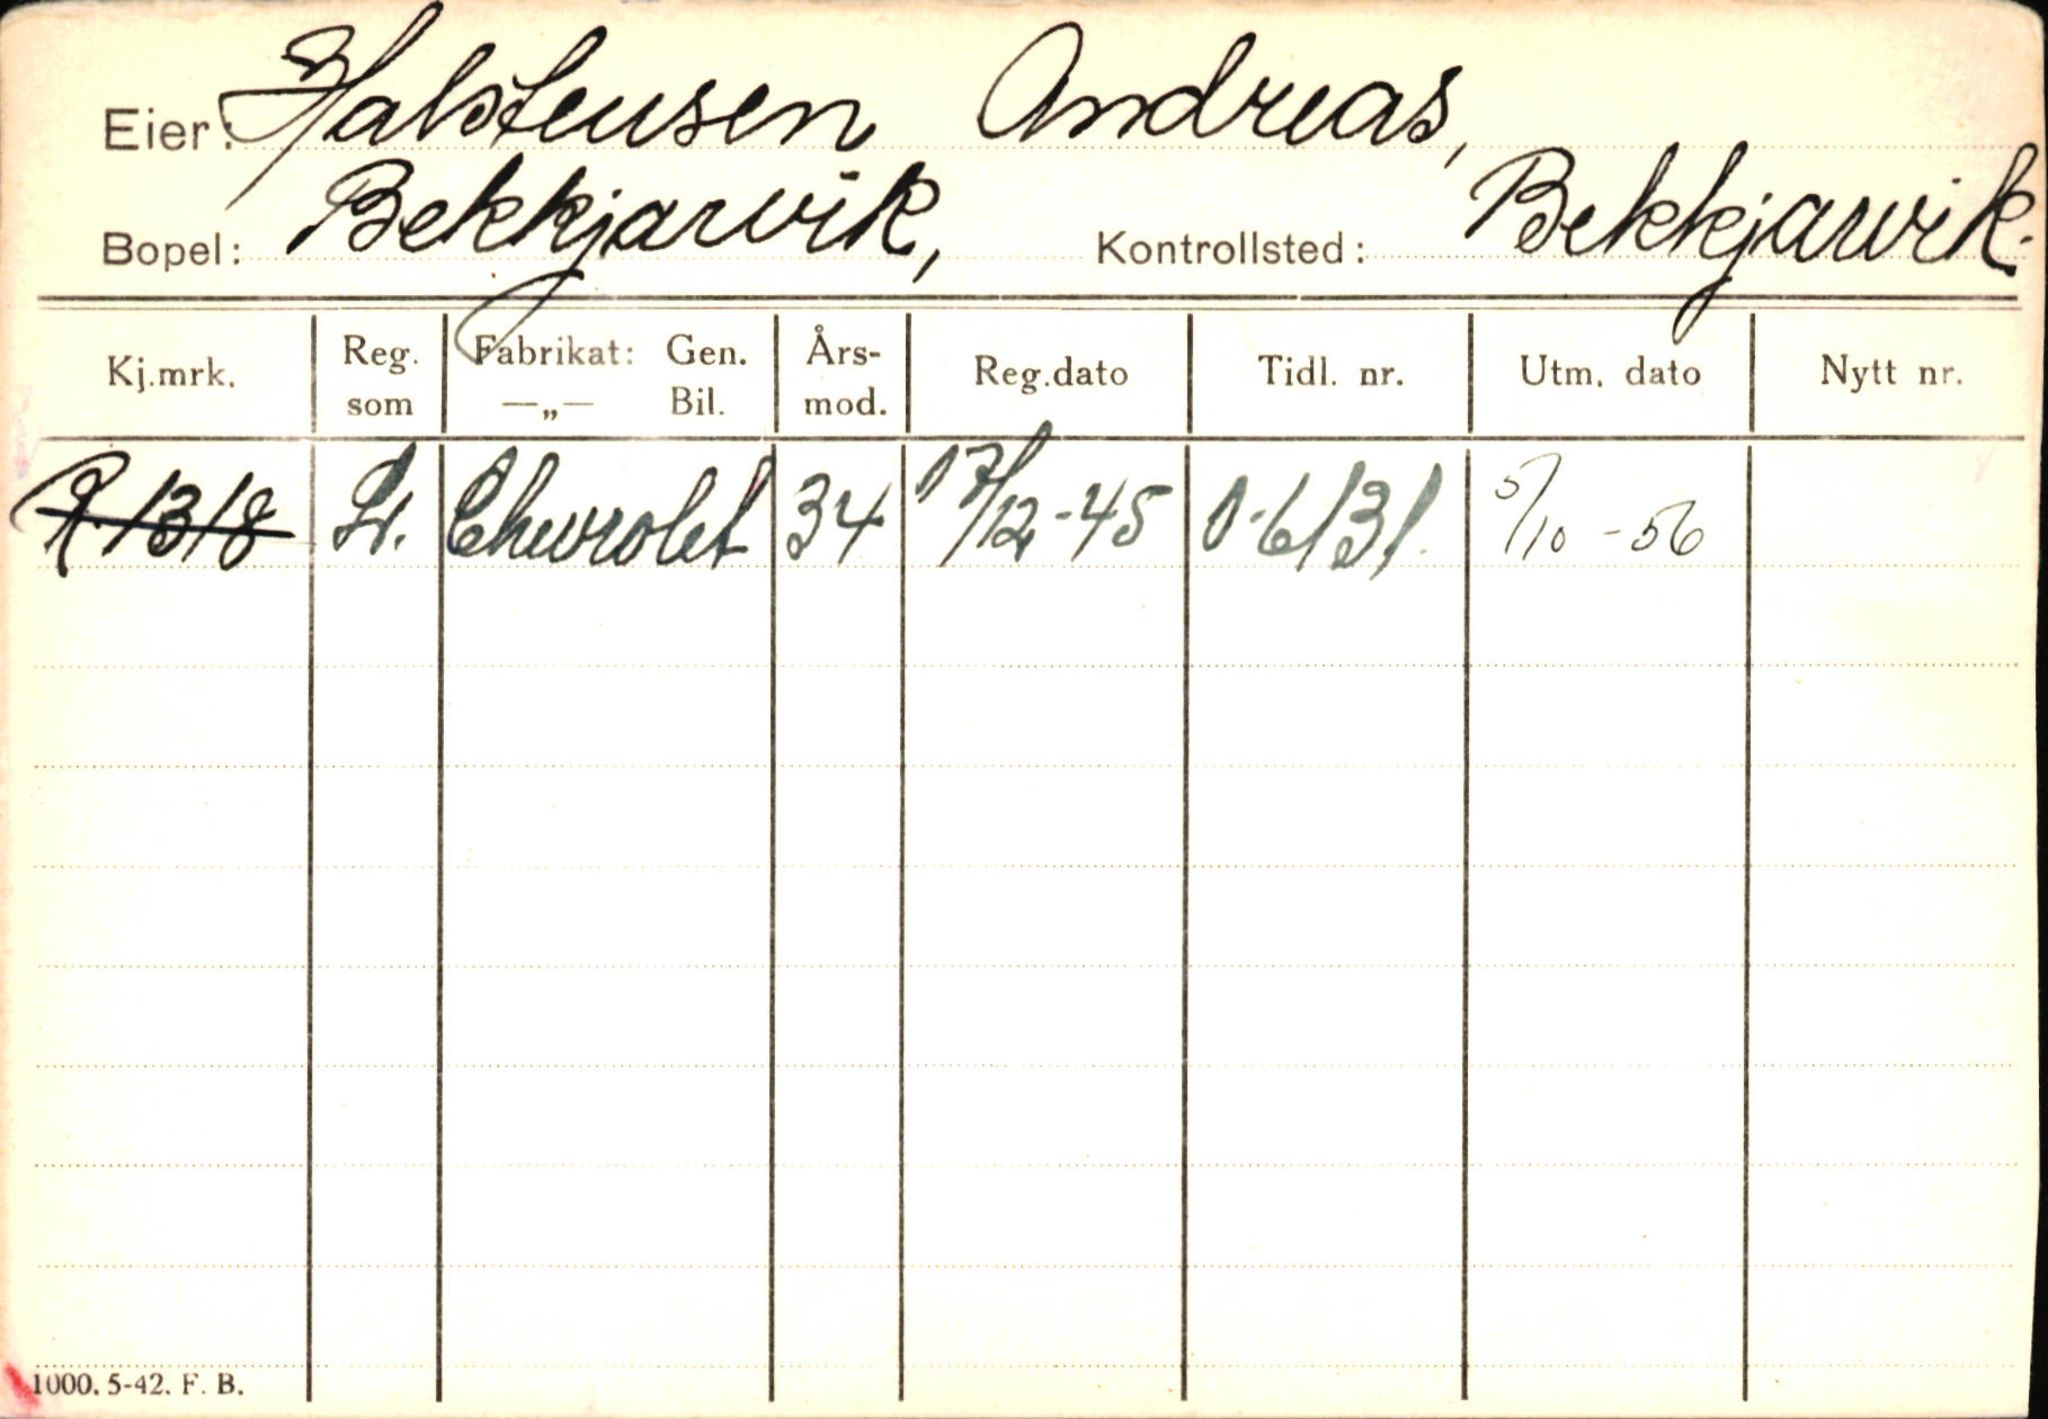 Eier: Halsteusen Andreas,
Bopel: Bekkjarvik, Kontrollsted: Bekkjarvik.
Kj.mrk. Reg. som Fabrikat: Gen. —„— Bil. Års-mod. Reg.dato Tidl. nr. Utm. dato Nytt nr.
R-1318 Chevrolet 34 17/12-45 O-6131. 5/10-56
1000. 5-42. F. B.